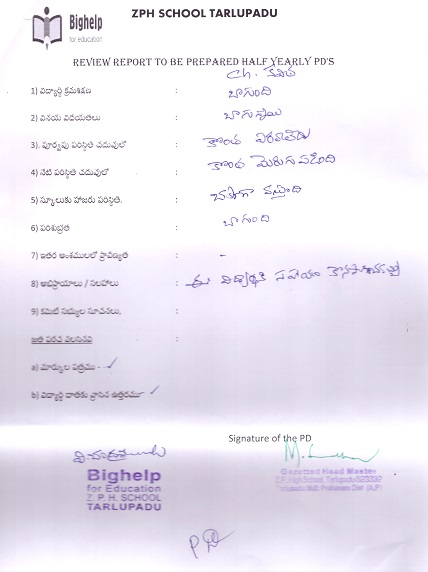 Bighelp
for education
ZPH SCHOOL TARLUPADU
REVIEW REPORT TO BE PREPARED HALF YEARLY PD'S
Ch. కవిత
1) విద్యార్థి క్రమశిక్షణ : బాగుంది
2) వినయ విధేయతలు : బాగున్నాయి
3). పూర్వపు పరిస్థితి చదువులో : కొంత
4) నేటి పరిస్థితి చదువులో : కొంత మెరుగుపడింది
5) స్కూలుకు హాజరు పరిస్థితి. : బాగా వస్తుంది
6) పరిశుభ్రత : బాగుంది
7) ఇతర అంశములలో ప్రావిణ్యత : -
8) అభిప్రాయాలు / సలహాలు : ఈ విద్యార్థికి సహాయం కొనసాగించవచ్చు
9) కమిటి సభ్యుల సూచనలు, :
జత పరచ వలసినవి
a) మార్కుల పత్రము - ✓
b) విద్యార్థి దాతకు వ్రాసిన ఉత్తరము ✓
Signature of the PD
Bighelp
for Education
Z. P. H. SCHOOL
TARLUPADU
Gazetted Head Master
Z.P. High School, Tarlupadu-523332
Tarlupadu Md: Prakasam Dist (A.P)
PD